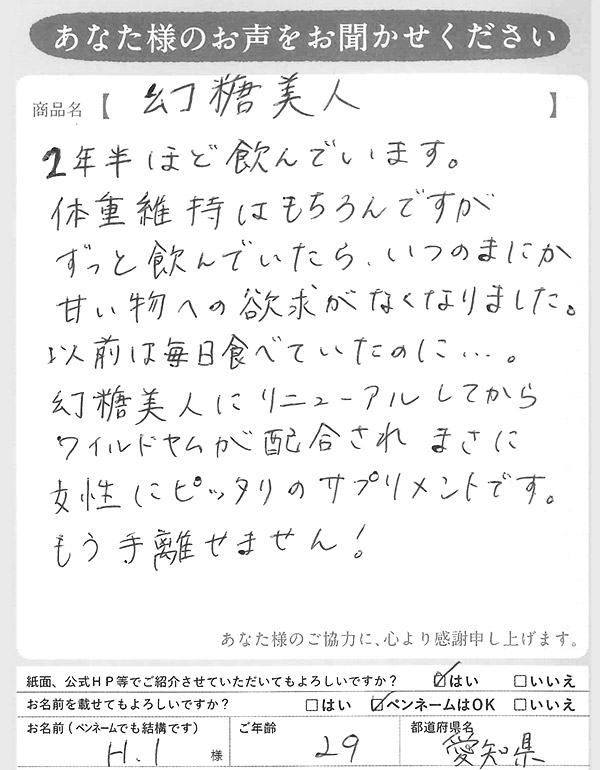 あなた様のお声をお聞かせください
商品名【 幻糖美人 】
2年半ほど飲んでいます。
体重維持はもちろんですが
ずっと飲んでいたら、いつのまにか
甘い物への欲求がなくなりました。
以前は毎日食べていたのに…。
幻糖美人にリニューアルしてから
ワイルドヤムが配合され まさに
女性にピッタリのサプリメントです。
もう手離せません!
あなた様のご協力に、心より感謝申し上げます。
紙面、公式HP等でご紹介させていただいてもよろしいですか? ☑はい □いいえ
お名前を載せてもよろしいですか? □はい ☑ペンネームはOK □いいえ
お名前(ペンネームでも結構です) ご年齢 都道府県名
H.I 様 29 愛知県